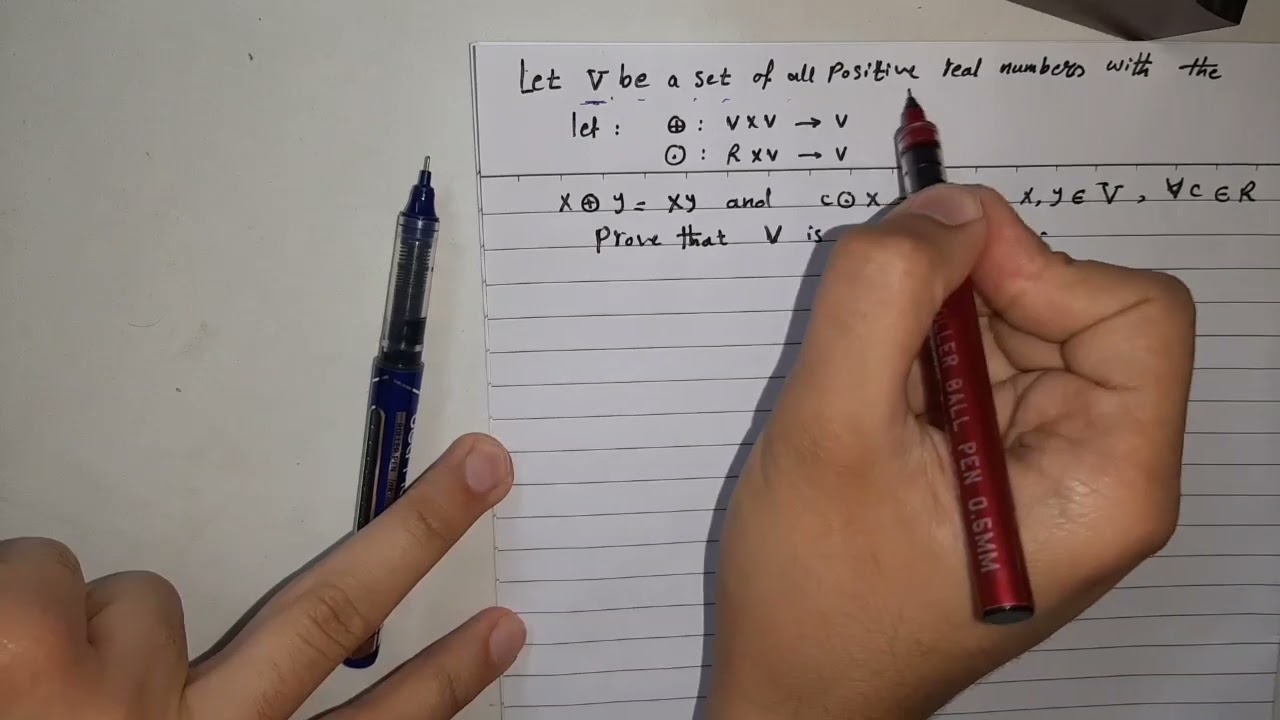 Let V be a set of all positive real numbers with the
let : ⊕ : V x V → V
⊙ : R x V → V
x ⊕ y = xy and c ⊙ x x, y ∈ V , ∀ c ∈ R
Prove that V is
ROLLER BALL PEN 0.5MM